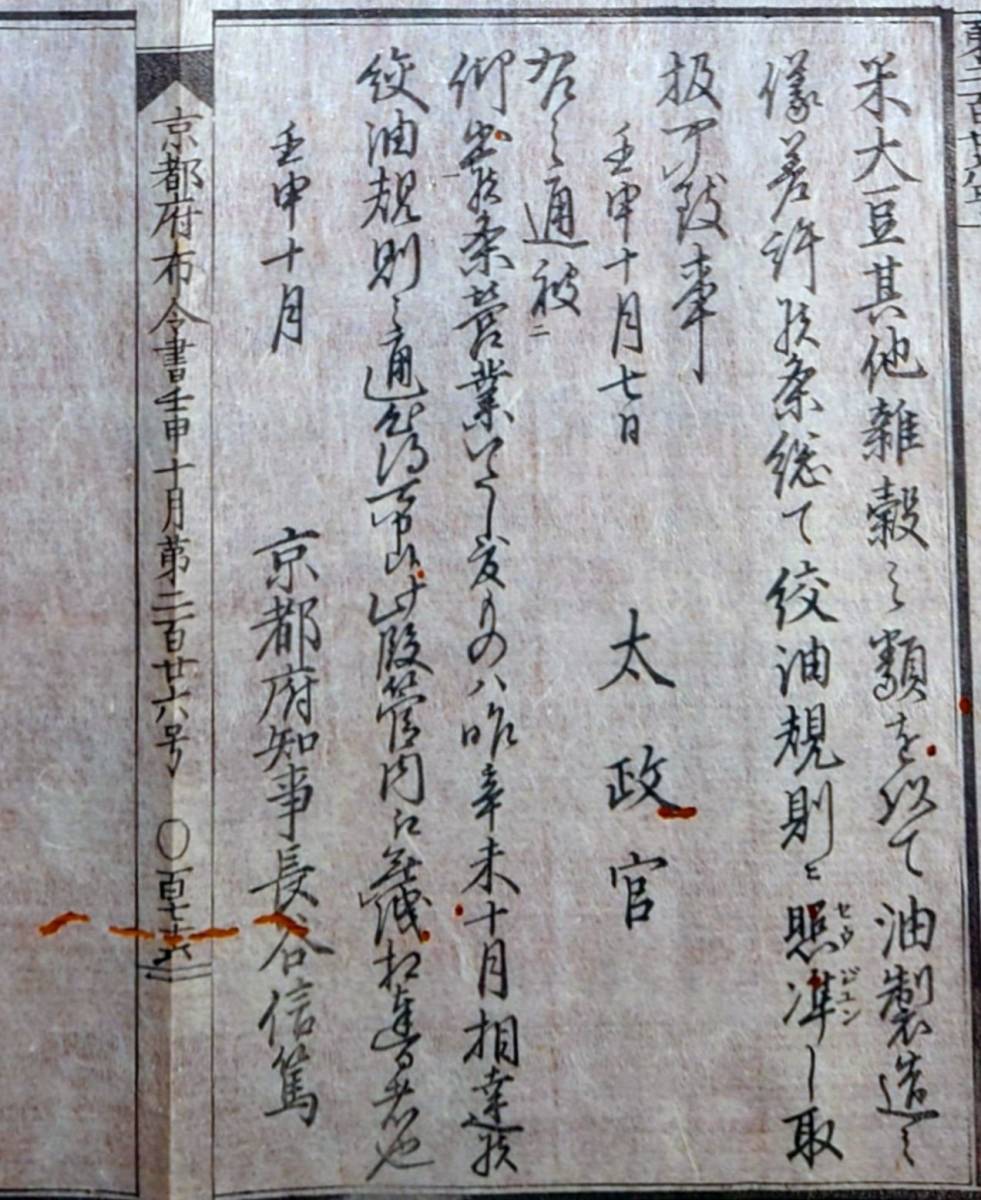 第二百廿六号
米大豆其他雑穀之類を以て油製造之
儀差許候条総て絞油規則ニ照準し取
セウ ジユン
扱可致事
壬申十月七日
太政官
右之通被
仰出候条営業いたし度ものハ昨辛未十月相達候
絞油規則之通
此段管内江無洩相達る者也
壬申十月
京都府知事長谷信篤
京都府布令書壬申十月第二百廿六号 〇百七十六